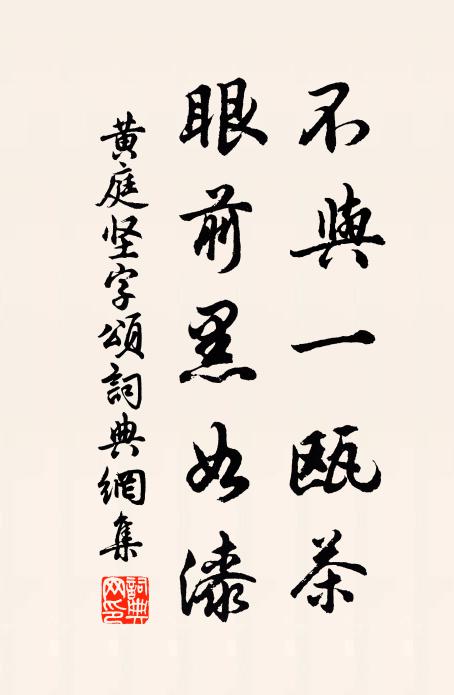 不與一甌茶
眼前黑如漆
黄庭坚字頌詞典網集
詞典网印